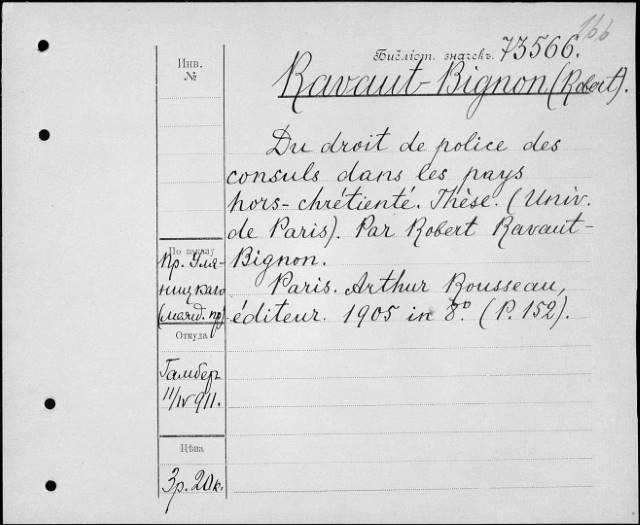 166
Библіот. значекъ. 73566.
Инв.
№
Ravaut-Bignon (Robert).
Du droit de police des
consuls dans les pays
hors-chrétienté. Thèse. (Univ.
de Paris). Par Robert Ravaut-
Bignon.
Paris. Arthur Rousseau,
éditeur. 1905 in 8º. (P. 152).
По заказу
Пр. Уля-
ницкаго
(межд. пр.)
Откуда
Гамбер
11/IV 911.
Цѣна
3р. 20к.